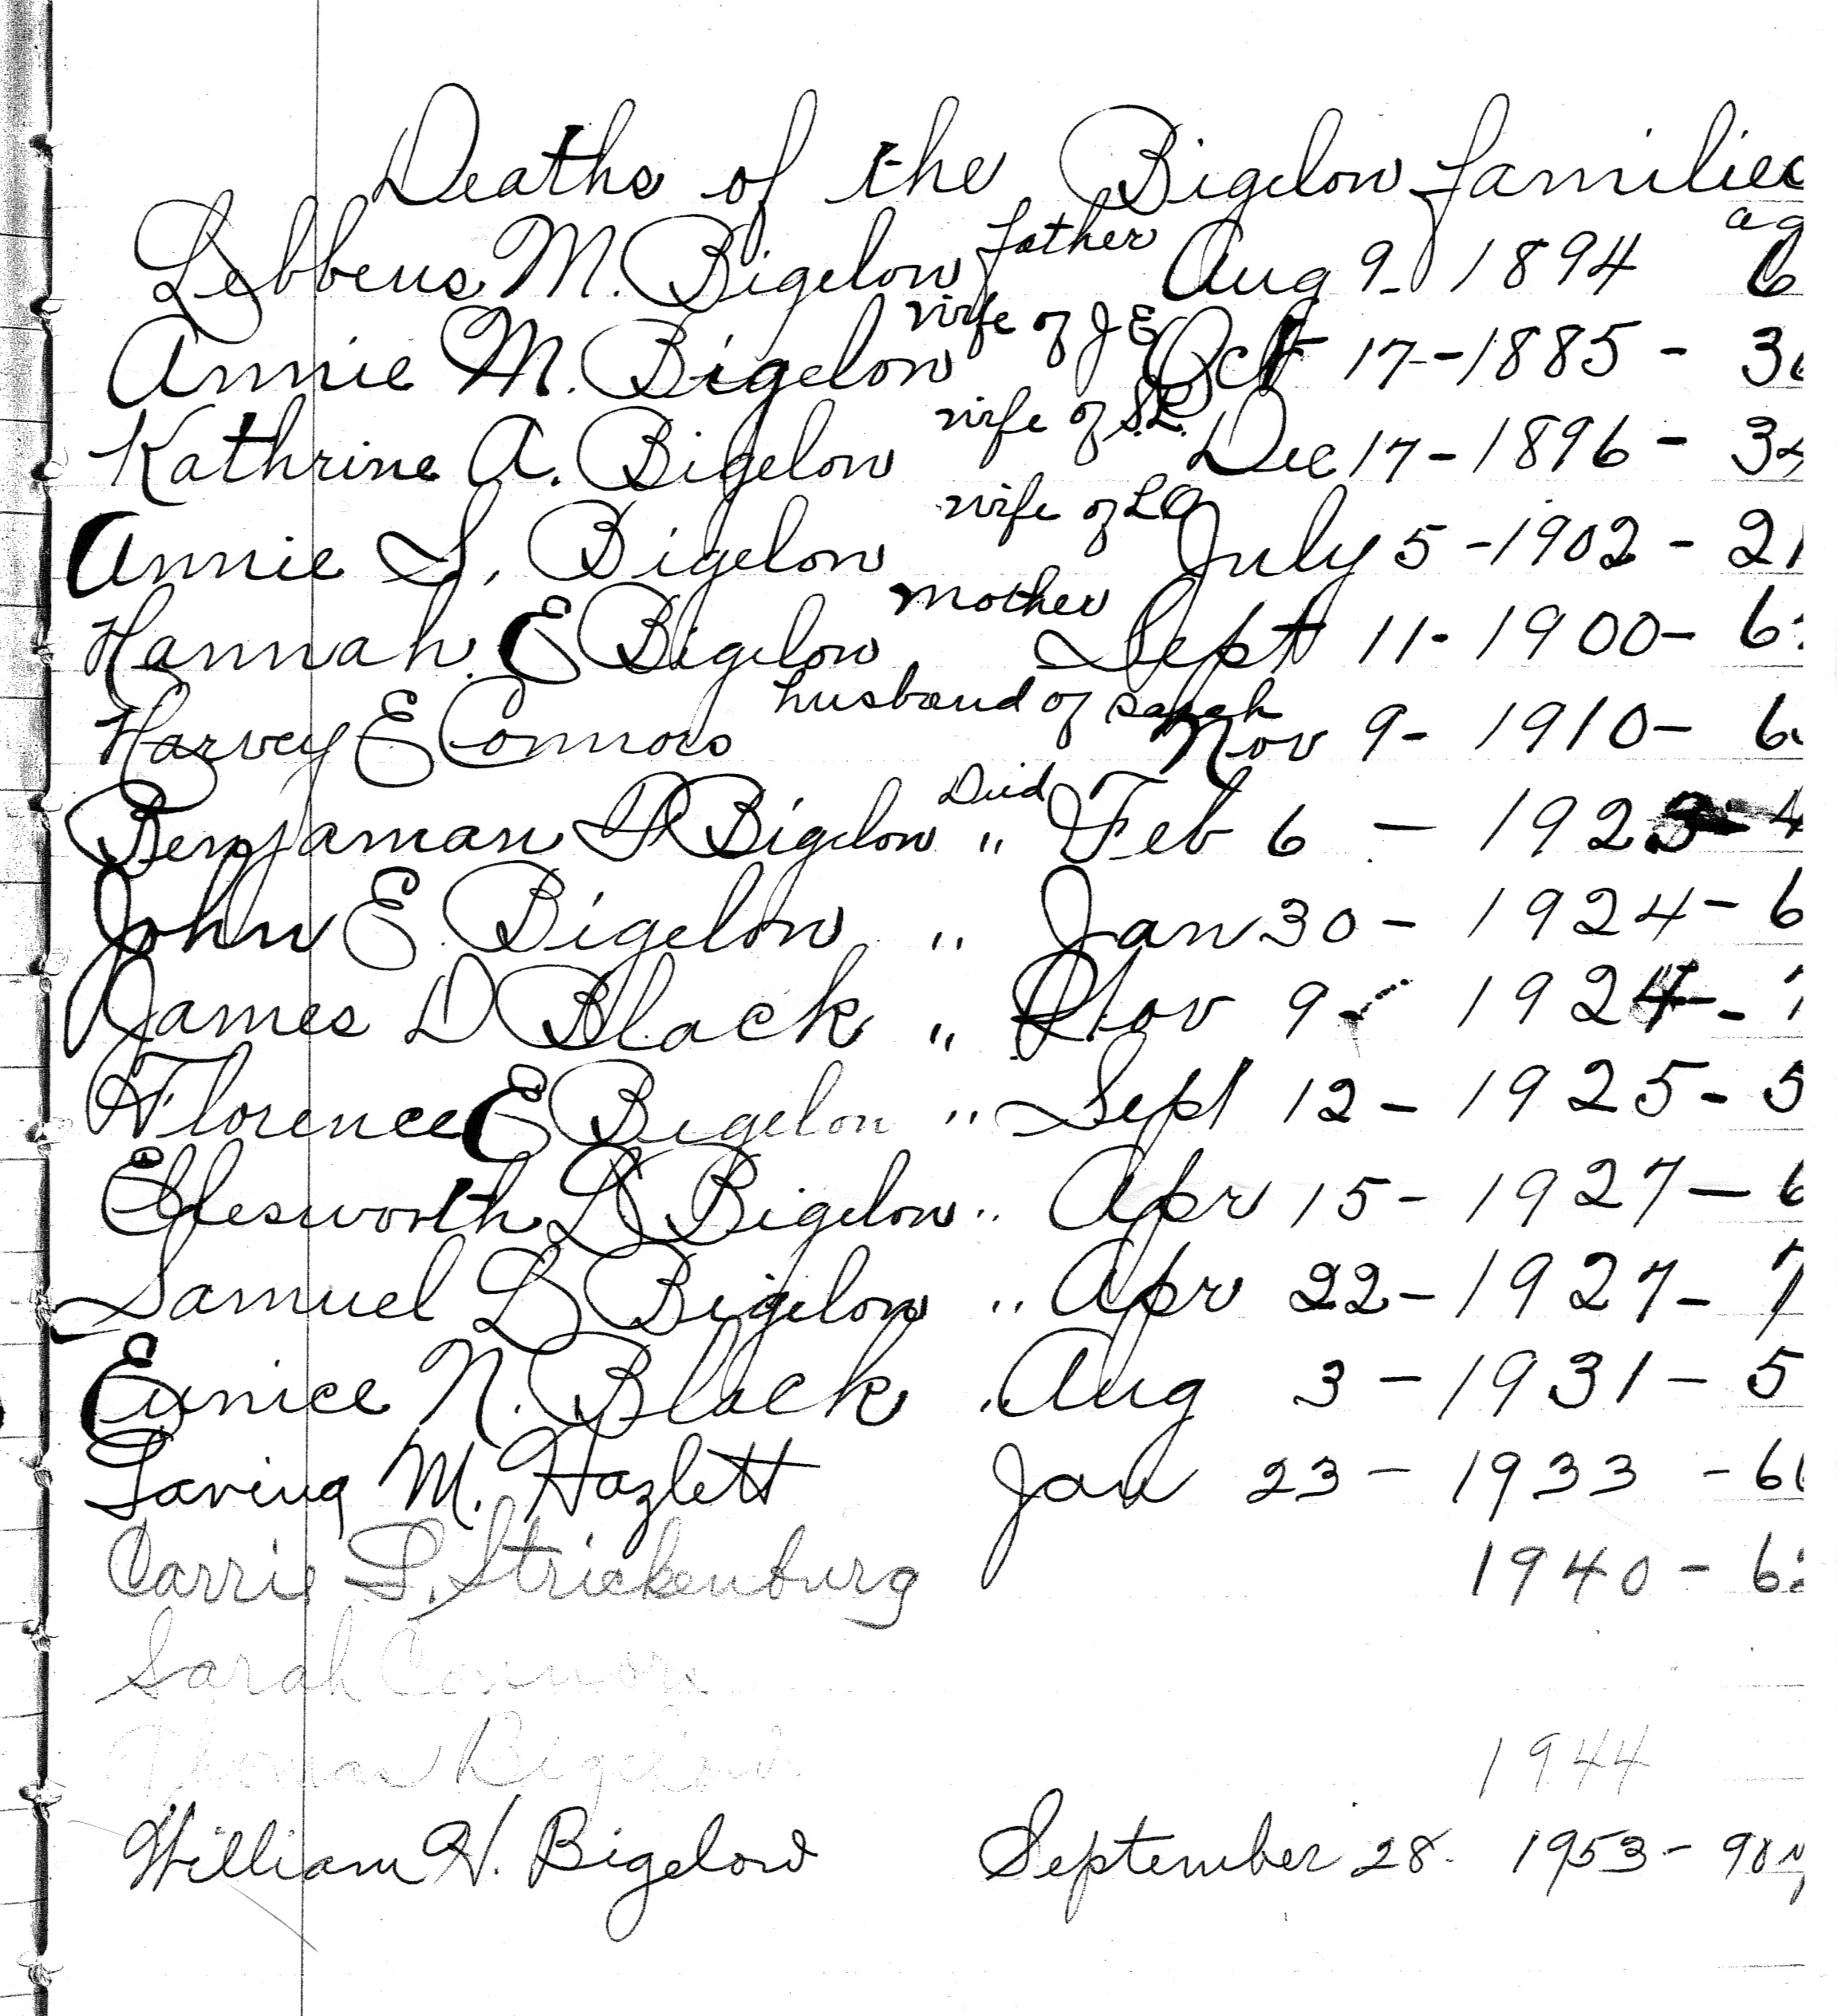 Deaths of the Bigelow families
ag
Lebbeus M. Bigelow father Aug 9- 1894 6
Annie M. Bigelow wife of J E Oct 17-1885 - 3
Kathrine A. Bigelow wife of S.L. Dec 17-1896 - 34
Annie S. Bigelow wife of L O July 5 -1902 - 21
Hannah E Bigelow mother Sept 11- 1900- 6
Harvey E Connors husband of Sarah Nov 9- 1910- 6
Benjaman F Bigelow Died " Feb 6 - 1923 - 4
John E. Bigelow " Jan 30 - 1924 - 6
James D Black " Nov 9 - 1924 - 7
Florence E Bigelow " Sept 12 - 1925 - 5
Ellesworth D Bigelow " Apr 15 - 1927 - 6
Samuel L Bigelow " Apr 22 - 1927 - 7
Eunice N. Black " Aug 3 - 1931 - 5
Lavina M. Hazlett Jan 23 - 1933 - 6
Carrie L. Strickenburg 1940 - 6
Sarah Connors
Thomas Bigelow 1944
William H. Bigelow September 28. 1953 - 90 y